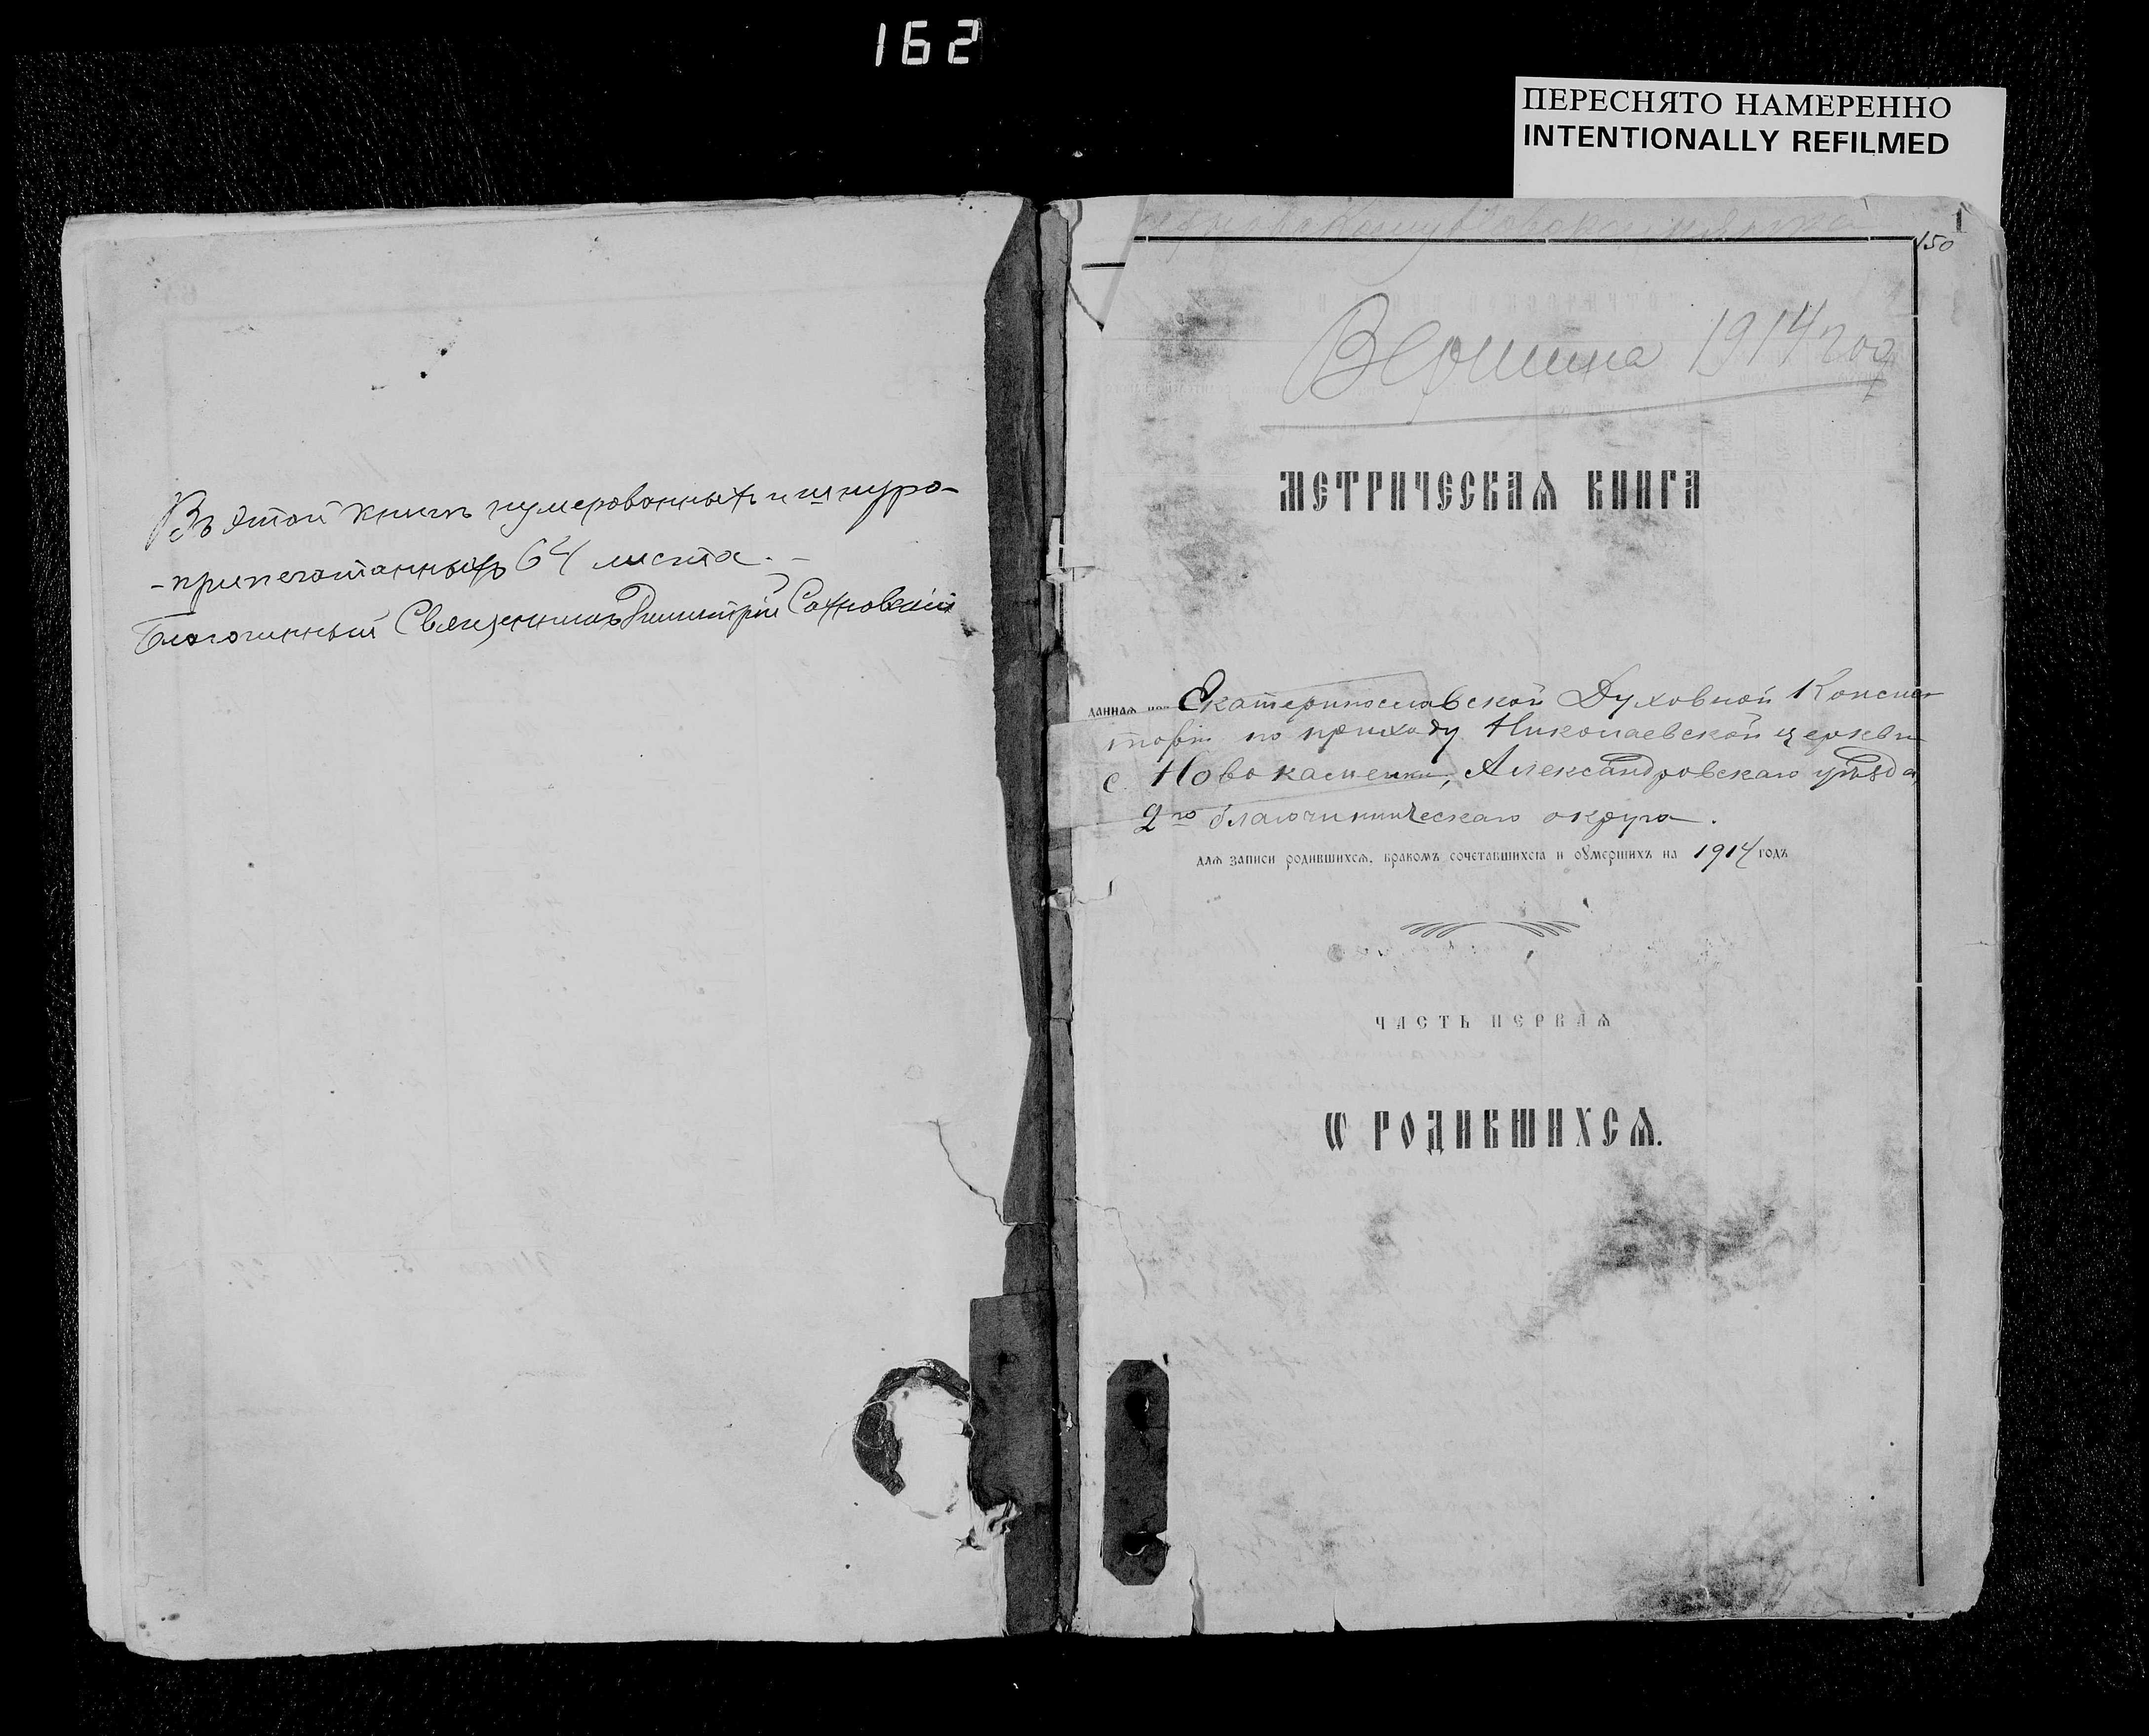 162
ПЕРЕСНЯТО НАМЕРЕННО
INTENTIONALLY REFILMED
Въ этой книгѣ нумерованныхъ и шнуро-
-припечатанныхъ 64 листа. -
Благочинный Священникъ Димитрій Сахновскій
1
150
Вершина 1914 год
МЕТРИЧЕСКАѦ КНИГА
даннаѧ изъ Екатеринославской Духовной Консис-
торіи по приходу Николаевской церкви
с. Новокаменки, Александровскаго уѣзда,
2го благочинническаго округа.
длѧ записи родившихсѧ, бракомъ сочетавшихсѧ и оумершихъ на 1914 годъ
ЧАСТЬ ПЕРВАѦ
Ѡ РОДИВШИХСѦ.